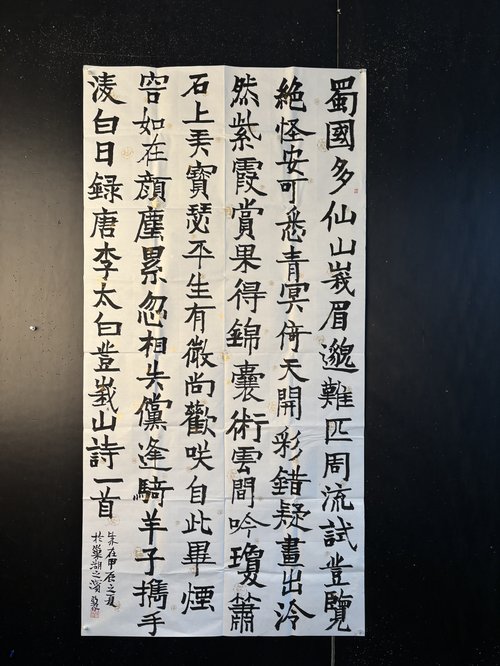 蜀國多仙山峩眉邈難匹周流試登覽
絶怪安可悉青冥倚天開彩錯疑畫出泠
然紫霞賞果得錦囊術雲間吟瓊簫
石上弄寶瑟平生有微尚歡咲自此畢煙
容如在顔塵累忽相失儻逢騎羊子擕手
淩白日録唐李太白登峩山詩一首
在甲辰之夏
於巢湖之濱